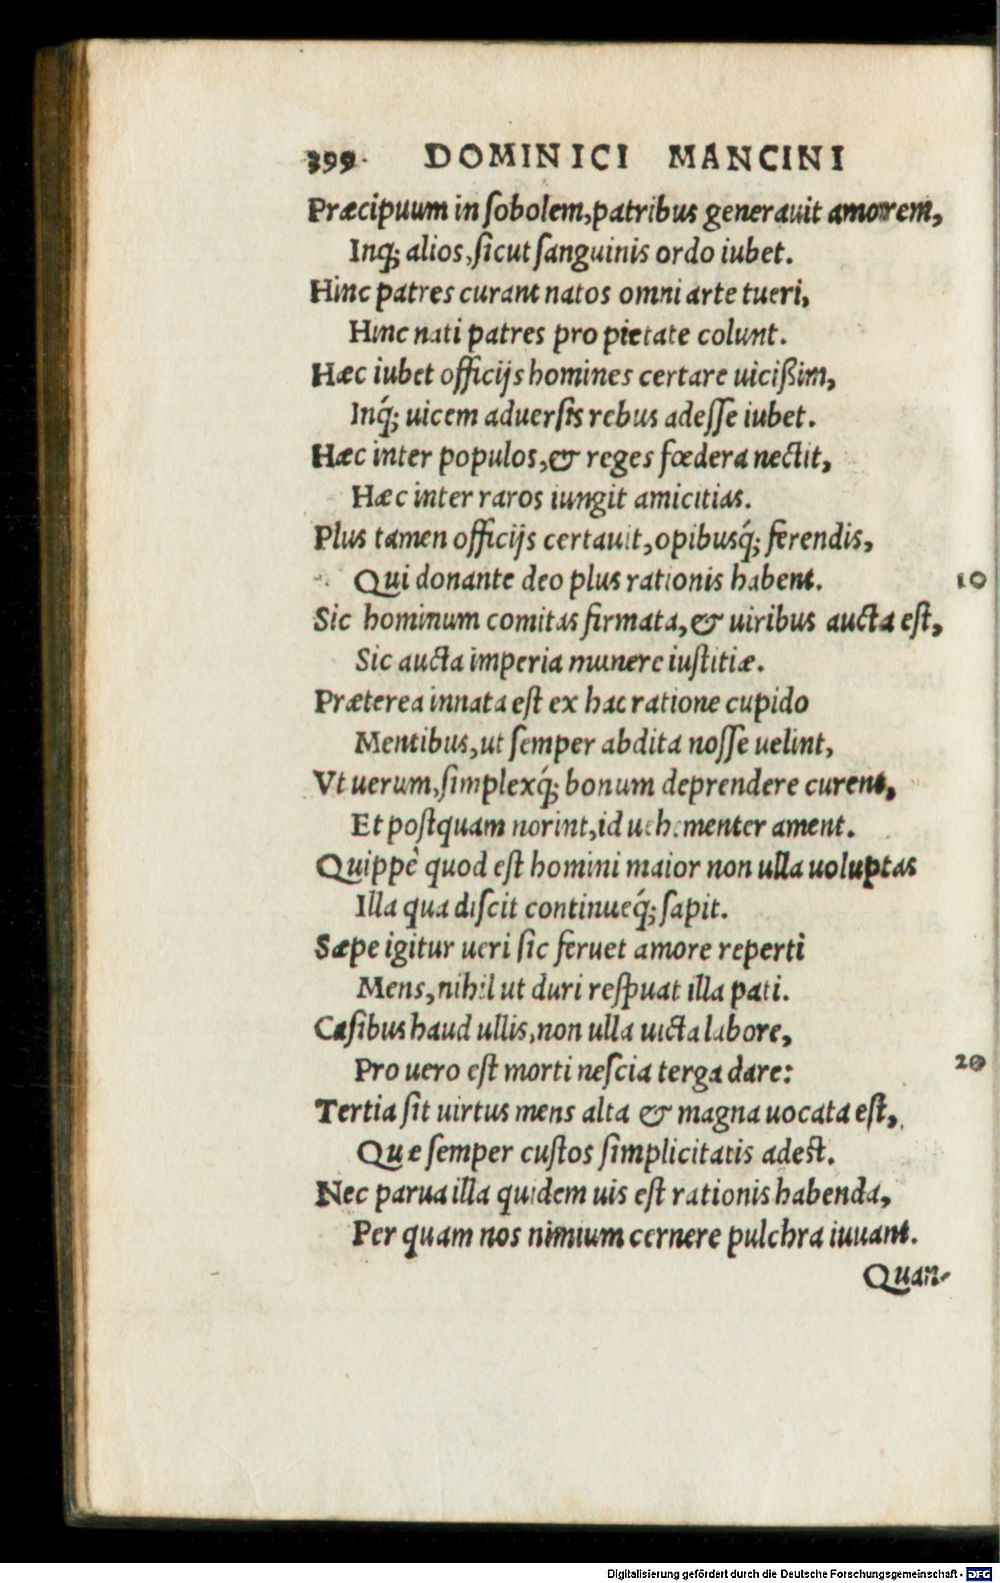 399. DOMINICI MANCINI
Præcipuum in ſobolem,patribus generauit amorem,
Inq́; alios,ſicut ſanguinis ordo iubet.
Hinc patres curant natos omni arte tueri,
Hinc nati patres pro pietate colunt.
Hæc iubet officijs homines certare uicißim,
Inq́; uicem aduerſis rebus adeſſe iubet.
Hæc inter populos,& reges fœdera nectit,
Hæc inter raros iungit amicitias.
Plus tamen officijs certauit,opibusq́; ferendis,
Qui donante deo plus rationis habent. 10
Sic hominum comitas firmata,& uiribus aucta eſt,
Sic aucta imperia munere iuſtitiæ.
Præterea innata eſt ex hac ratione cupido
Mentibus,ut ſemper abdita noſſe uelint,
Vt uerum,ſimplexq́; bonum deprendere curent,
Et poſtquam norint,id uehementer ament.
Quippè quod eſt homini maior non ulla uoluptas
Illa qua diſcit continueq́; ſapit.
Sæpe igitur ueri ſic feruet amore reperti
Mens,nihil ut duri reſpuat illa pati.
Caſibus haud ullis,non ulla uicta labore,
Pro uero eſt morti neſcia terga dare: 20
Tertia ſit uirtus mens alta & magna uocata eſt,
Que ſemper cuſtos ſimplicitatis adeſt.
Nec parua illa quidem uis eſt rationis habenda,
Per quam nos nimium cernere pulchra iuuant.
Quan-
Digitalisierung gefördert durch die Deutsche Forschungsgemeinschaft - DFG